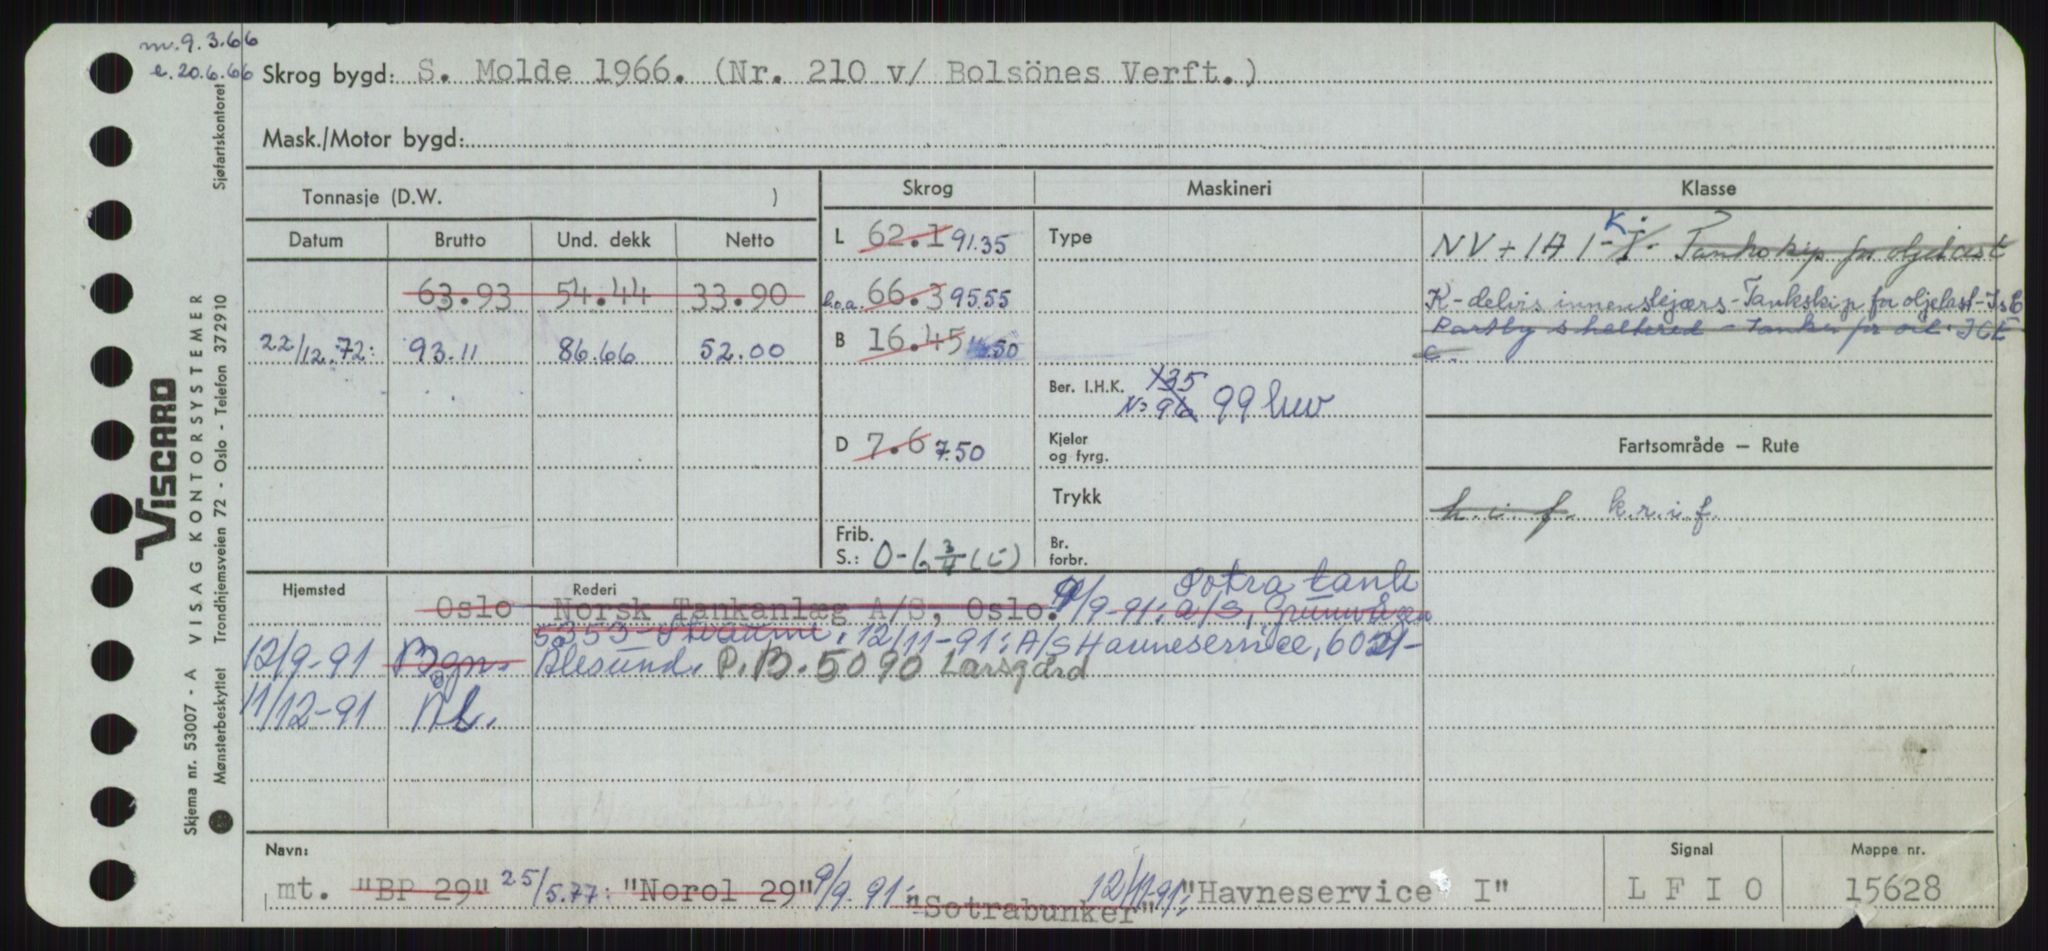 m. 9.3.66
e. 20.6.66
Skrog bygd: S. Molde 1966. (Nr. 210 v/ Bolsönes Verft.)
Mask./Motor bygd:
Tonnasje (D.W. )
Skrog
Maskineri
Klasse
Datum Brutto Und. dekk Netto
L 62.1 91.35
Type
NV + 1A 1 - I - K Tankskip for oljelast
63.93 54.44 33.90
l.o.a. 66.3 95.55
K - delvis innenskjærs - Tankskip for oljelast - Is C
Partly sheltered - Tanker for oil. ICE
C.
22/12.72: 93.11 86.66 52.00
B 16.45 16.50
Ber. I.H.K. 135
N: 96 99 kw
D 7.6 7.50
Kjeler
og fyrg.
Fartsområde — Rute
Trykk
h.i.f. k.r.i.f.
Frib.
S.: 0-6 3/4 (C)
Br.
forbr.
Hjemsted
Rederi
Sotra tank
Oslo Norsk Tankanlæg A/S, Oslo. 9/9-91: A/S, Grunnvågen
5353 - Straume. 12/11-91: A/S Havneservice, 6021-
12/9-91 Bgn. Ålesund. P.B. 5090 Larsgård
11/12-91 Ål.
Navn:
Signal
Mappe nr.
mt. "BP 29" 25/5.77: "Norol 29" 9/9.91: "Sotrabunker" 12/11-91: "Havneservice I"
L F I O
15628
VISCARD
VISAG KONTORSYSTEMER
Skjema nr. 53007 - A
Mønsterbeskyttet Trondhjemsveien 72 - Oslo - Telefon 372910
Sjøfartskontoret